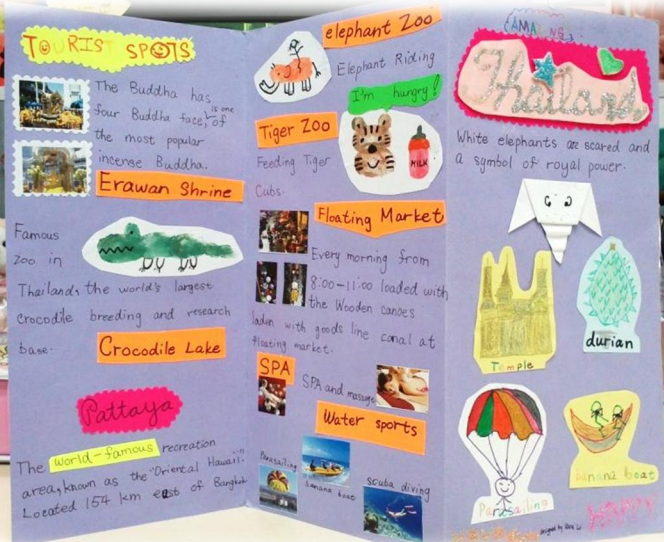 TOURIST SPOTS
The Buddha has
four Buddha face, is one of
the most popular
incense Buddha.
Erawan Shrine
Famous
zoo in
Thailand, the world's largest
crocodile breeding and research
base.
Crocodile Lake
Pattaya
The world-famous recreation
area, known as the "Oriental Hawaii".
Located 154 km east of Bangkok
elephant Zoo
Elephant Riding
I'm hungry!
Tiger Zoo
Feeding Tiger
Cubs.
MILK
Floating Market
Every morning from
8:00-11:00 loaded with
the Wooden canoes
laden with goods line canal at
floating market.
SPA
SPA and massage
Water sports
Parasailing
banana boat
scuba diving
AMAZING
Thailand
White elephants are scared and
a symbol of royal power.
Temple
durian
Parasailing
banana boat
designed by
HAPPY